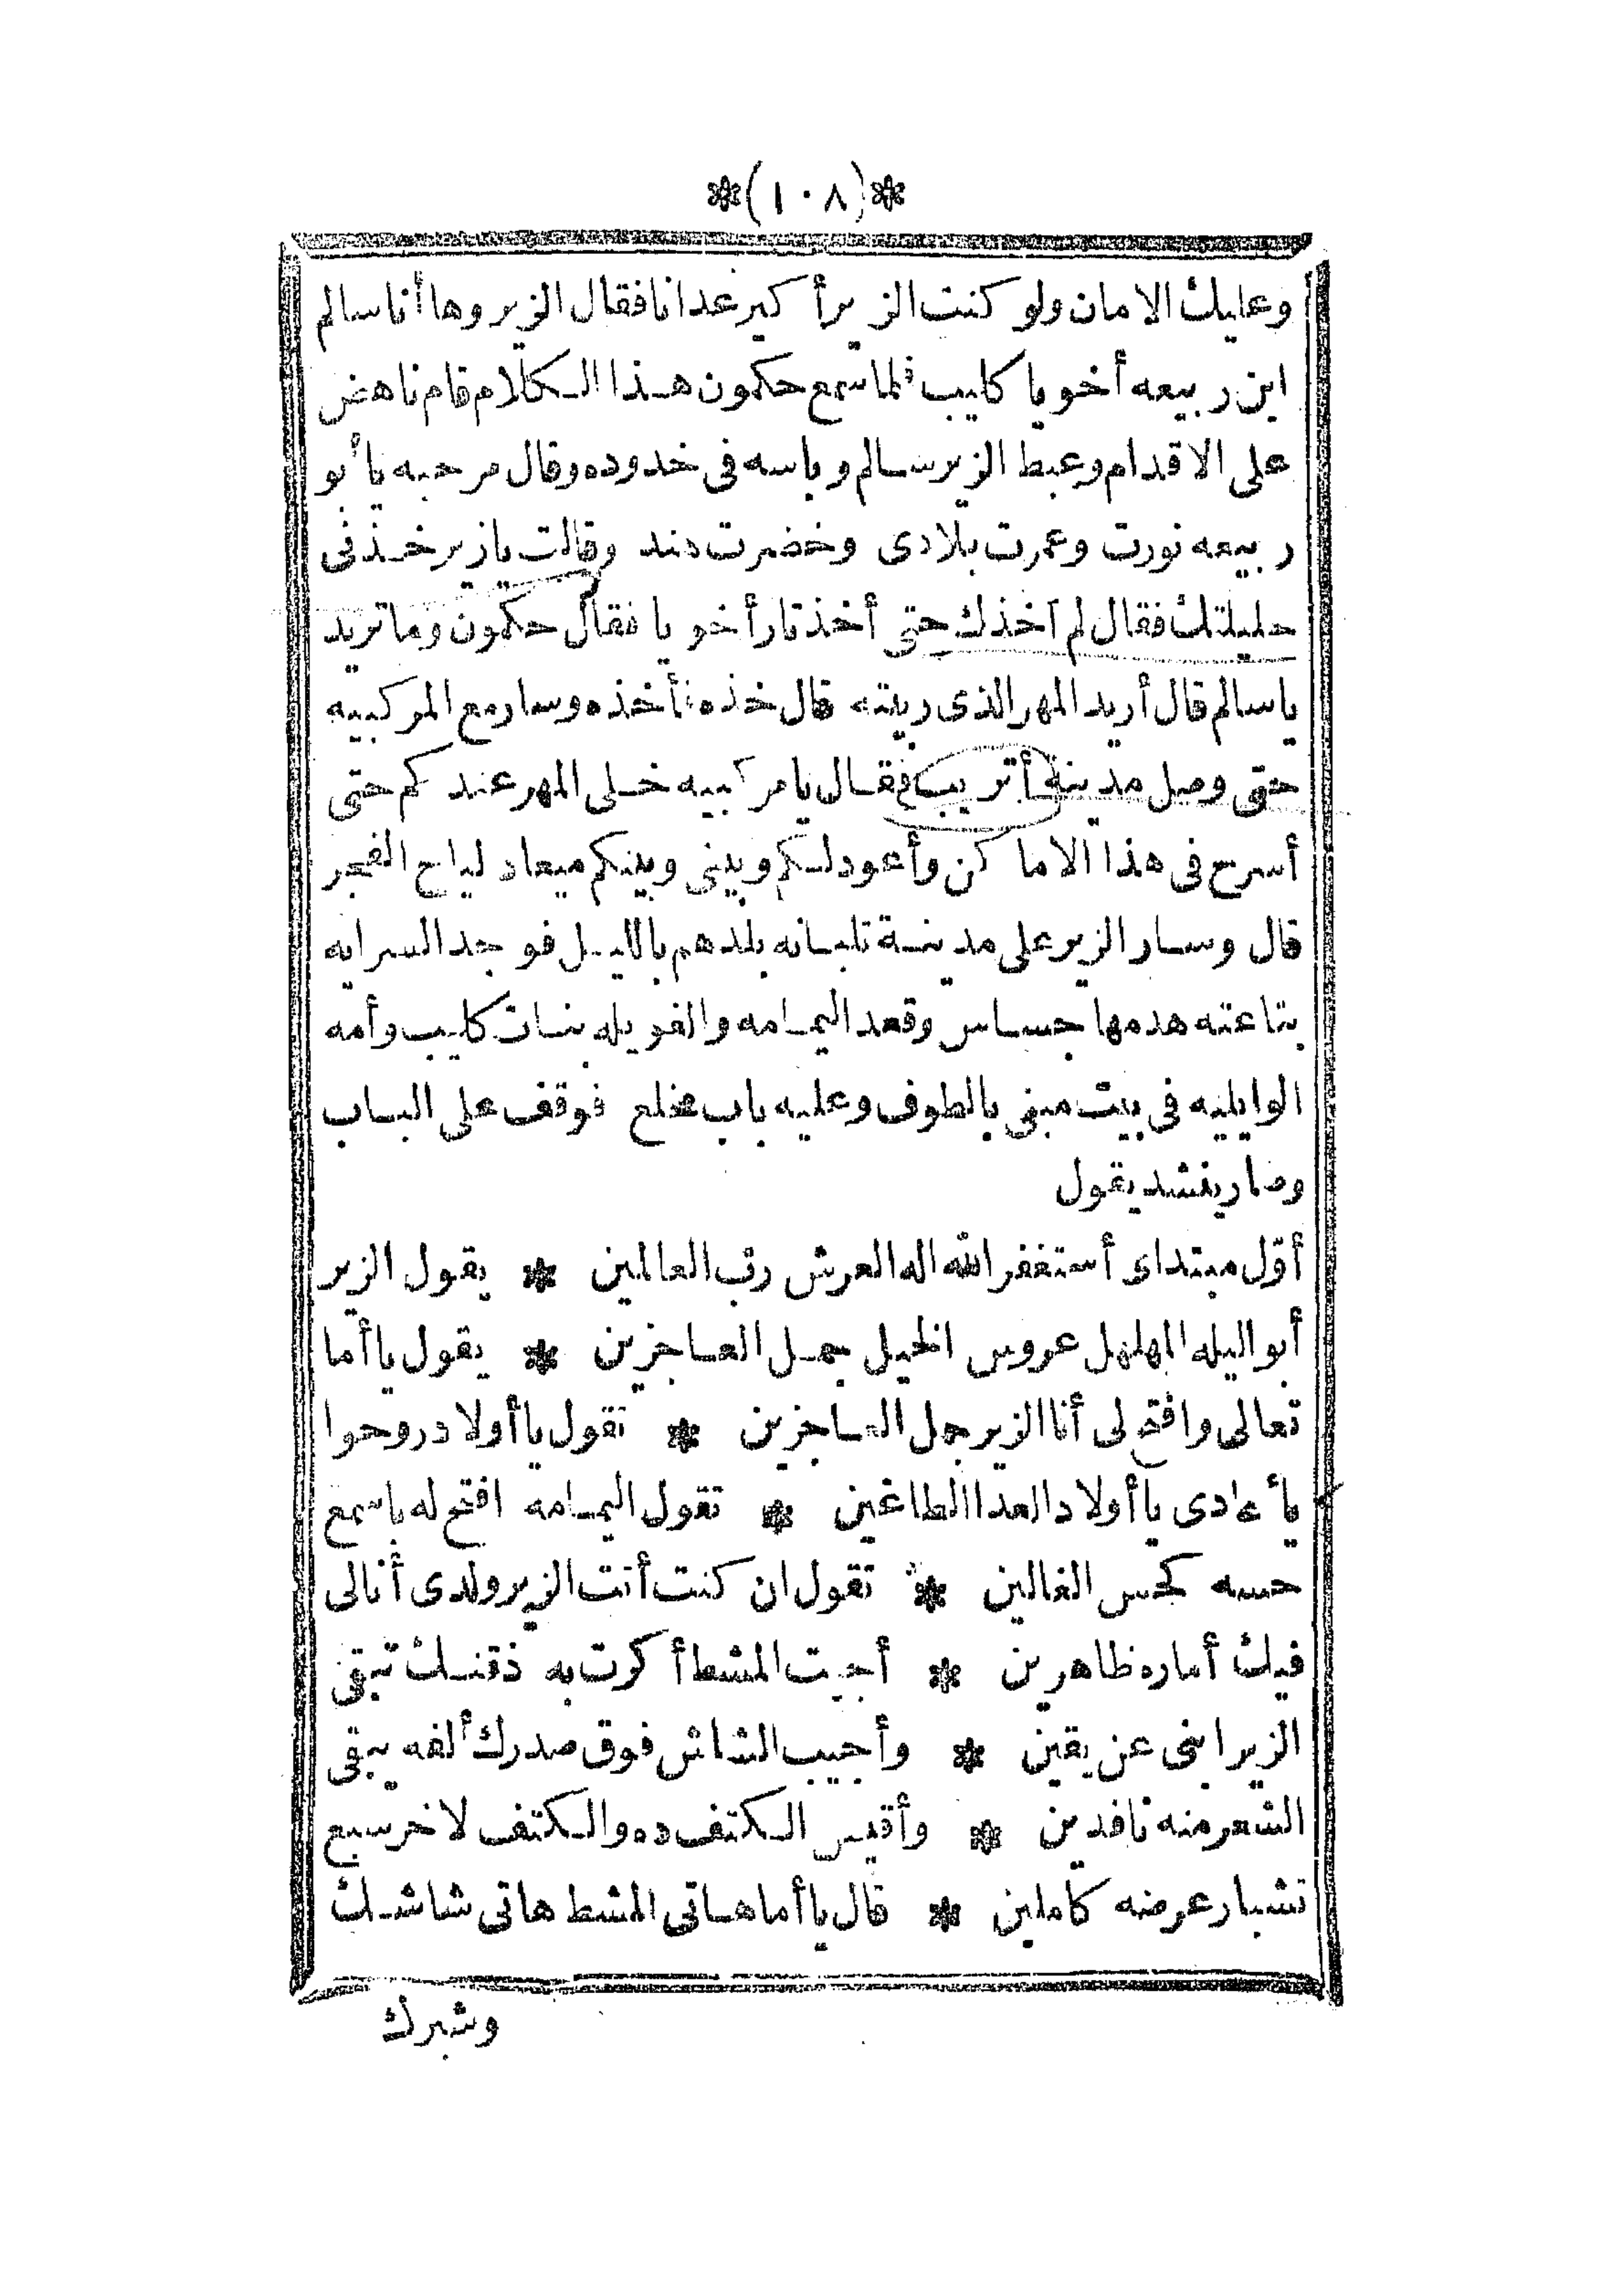 *(١٠٨)*
وعليك الامان ولو كنت الزير أكبر عدانا فقال الزير وها أنا سالم
ابن ربيعه أخويا كليب فلما سمع حكمون هذا الكلام قام ناهض
على الاقدام وعبط الزير سالم وباسه فى خدوده وقال مرحبه يا أبو
ربيعه نورت وعمرت بلادى وخضرت دند وقالت يازير خذنى
حليلتك فقال لم آخذك حتى أخذ تار أخويا فقال حكمون وما تريد
ياسالم قال أريد المهر الذى ريته قال خذه فأخذه وسار مع المركبيه
حتى وصل مدينة أتريب فقال يا مركبيه خلى المهر عندكم حتى
أسرح فى هذا الاماكن وأعود لكم وبينى وبينكم ميعاد لياح الفجر
قال وسار الزير على مدينة تلبانه بلدهم بالليل فوجد السرايه
بتاعته هدمها جساس وقعد اليمامه والغويله بنات كليب وأمه
الوايليه فى بيت مبنى بالطوف وعليه باب مخلع فوقف على الباب
وصار ينشد يقول
أوّل مبتداى أستغفر الله اله العرش ربّ العالمين * يقول الزير
أبو اليله المهلهل عروس الخيل جمل العاجزين * يقول يا أما
تعالى وافتحى لى أنا الزير جمل العاجزين * تقول يا أولاد روحوا
يا عادى يا أولاد العدا الطاغين * تقول اليمامه افتح له باسمع
حسه كحس الغالين * تقول ان كنت أنت الزير ولدى أنا لى
فيك أماره ظاهرين * أجيت المشط أكرت به ذقنك تبقى
الزير ابنى عن يقين * وأجيب الشاش فوق صدرك ألفه يبقى
الشعر منه نافدين * وأقيس الكتف ده والكتف لاخر سبع
تشبار عرضه كاملين * قال يا أما هاتى المشط هاتى شاشك
وشبرك